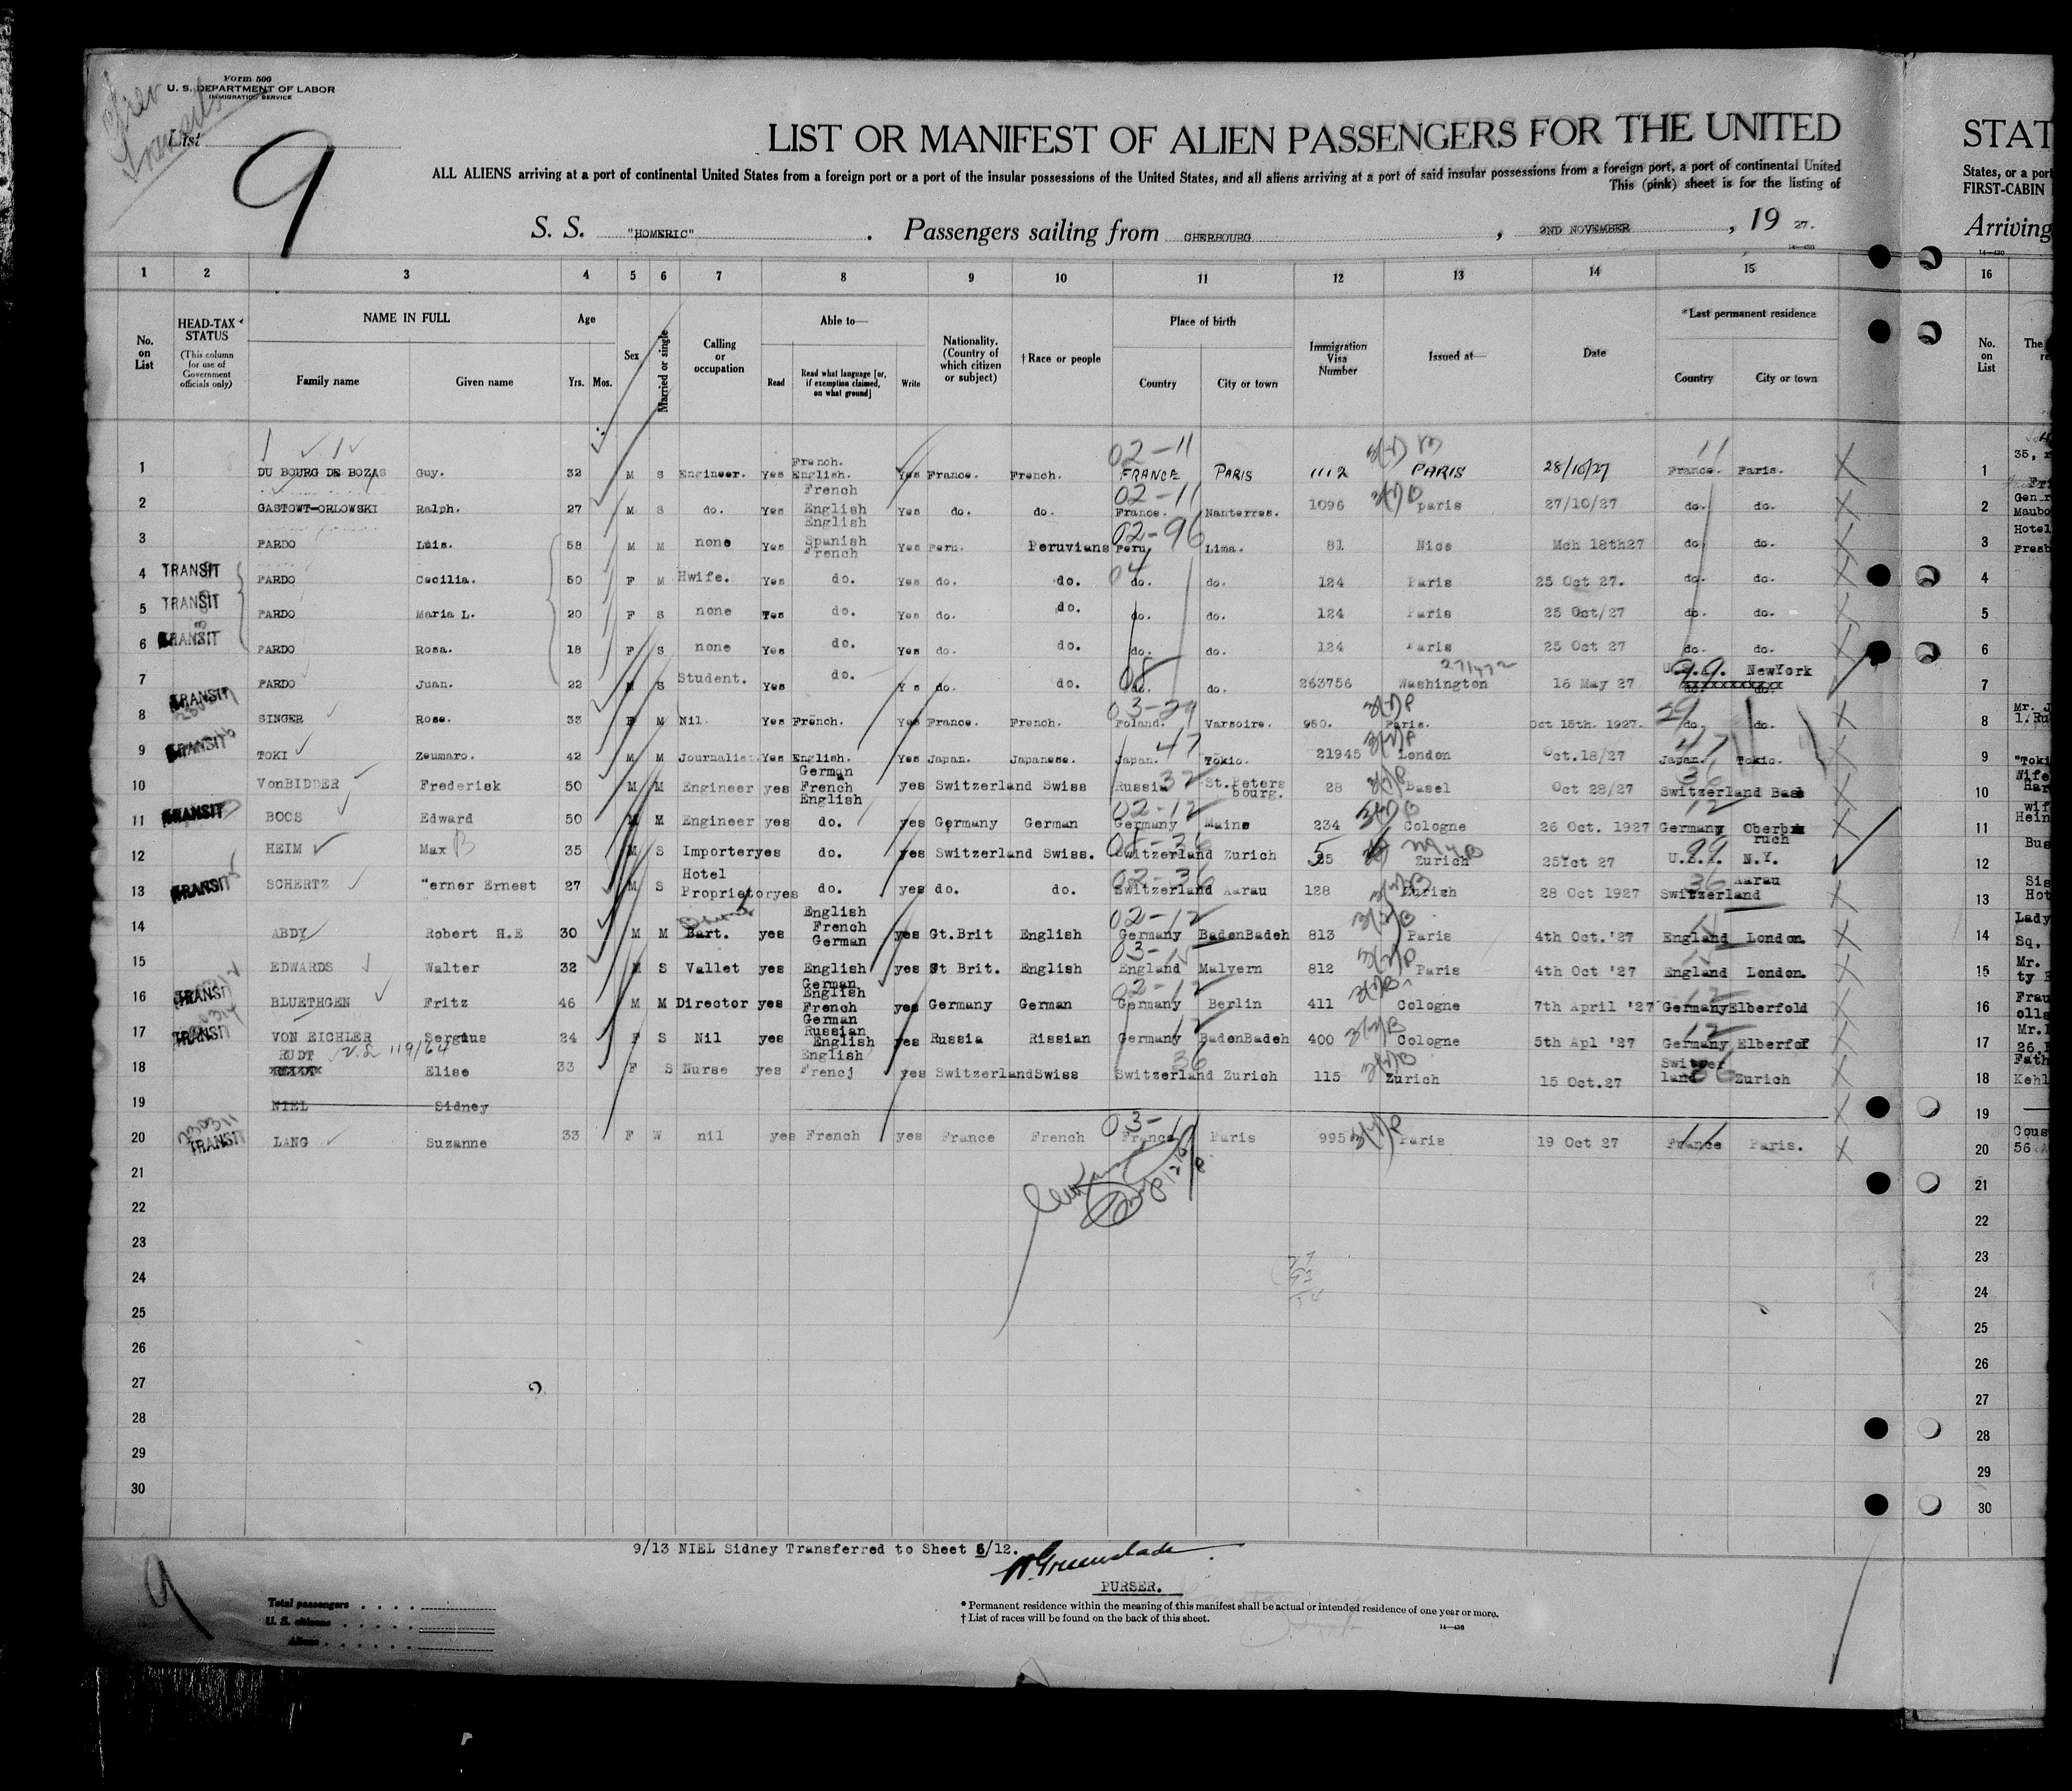 Form 500
U. S. DEPARTMENT OF LABOR
IMMIGRATION SERVICE
List
9
LIST OR MANIFEST OF ALIEN PASSENGERS FOR THE UNITED
ALL ALIENS arriving at a port of continental United States from a foreign port or a port of the insular possessions of the United States, and all aliens arriving at a port of said insular possessions from a foreign port, a port of continental United
This (pink) sheet is for the listing of
S. S. "HOMERIC" . Passengers sailing from CHERBOURG , 2ND NOVEMBER , 19 27.
14—430
STAT
States, or a port
FIRST-CABIN
Arriving
14—430
1 2 3 4 5 6 7 8 9 10 11 12 13 14 15 16
No. on List
HEAD-TAX STATUS
(This column for use of Government officials only)
NAME IN FULL
Family name Given name
Age
Yrs. Mos.
Sex
Married or single
Calling or occupation
Able to—
Read
Read what language [or, if exemption claimed, on what ground]
Write
Nationality. (Country of which citizen or subject)
†Race or people
Place of birth
Country City or town
Immigration Visa Number
Issued at—
Date
*Last permanent residence
Country City or town
No. on List
The
1 DU BOURG DE BOZAS Guy. 32 M S Engineer. Yes French. English. Yes France. French. 02-11 FRANCE PARIS 1112 PARIS 28/10/27 11 France. Paris. 1 35,
2 GASTOWT-ORLOWSKI Ralph. 27 M S do. Yes French English Yes do. do. 02-11 France. Nanterres. 1096 paris 27/10/27 do. do. 2 Maubo
3 PARDO Luis. 58 M M none Yes English Spanish French Yes Peru. Peruvians 02-96 Peru Lima. 81 Nice Mch 18th27 do. do. 3 Hotel Presb
4 TRANSIT PARDO Cecilia. 50 F M Hwife. Yes do. Yes do. do. do. do. 124 Paris 25 Oct 27. do. do. 4
5 TRANSIT PARDO Maria L. 20 F S none Yes do. Yes do. do. do. do. 124 Paris 25 Oct/27 do. do. 5
6 TRANSIT PARDO Rosa. 18 F S none Yes do. Yes do. do. do. do. 124 Paris 25 Oct 27 do. do. 6
7 TRANSIT PARDO Juan. 22 M S Student. Yes do. Y s do. do. do. do. 263756 Washington 16 May 27 U.S.A. NewYork 7
8 SINGER Rose. 33 F M Nil. Yes French. Yes France. French. 03-29 Poland. Varsoire. 950. Paris. Oct 15th. 1927. do. do. 8 Mr. J
9 TRANSIT TOKI Zeumaro. 42 M M Journalist. Yes English. Yes Japan. Japanese. 47 Japan. Tokio. 21945 London Oct.18/27 47 Japan. Tokio. 9 "Toki
10 VonBIDDER Frederisk 50 M M Engineer yes German French English yes Switzerland Swiss Russia 32 St.Peters bourg. 28 Basel Oct 28/27 36 Switzerland Basl 10 Wife
11 TRANSIT BOOS Edward 50 M M Engineer yes do. yes Germany German 02-12 Germany Mains 234 Cologne 26 Oct. 1927 12 Germany Oberb ruch 11 wif Hein
12 HEIM Max B 35 M S Importer yes do. yes Switzerland Swiss. Switzerland Zurich Zurich 25Yct 27 99 U.S.A. N.Y. 12 Bus
13 TRANSIT SCHERTZ "erner Ernest 27 M S Hotel Proprietor yes do. yes do. do. 02-36 Switzerland Aarau 128 Zurich 28 Oct 1927 36 Switzerland Aarau 13 Sis Hot
14 ABDY Robert H.E 30 M M Bart. yes English French German yes Gt.Brit English 02-12 Germany BadenBadeh 813 Paris 4th Oct.'27 England London. 14 Lady Sq.
15 EDWARDS Walter 32 M S Vallet yes English yes Gt Brit. English England Malvern 812 Paris 4th Oct '27 England London. 15 Mr. ty
16 TRANSIT BLUETHGEN Fritz 46 M M Director yes German English French yes Germany German 02-12 Germany Berlin 411 Cologne 7th April '27 12 Germany Elberfold 16 Frau olls
17 TRANSIT VON EICHLER Sergius 24 F S Nil yes German Russian English yes Russia Rissian 12 Germany BadenBadeh 400 Cologne 5th Apl '27 12 Germany Elberfof 17 Mr. 26
18 RUDT Elise 33 F S Nurse yes English Frencj yes Switzerland Swiss 36 Switzerland Zurich 115 Zurich 15 Oct.27 Switzer land Zurich 18 Fath Kehl
19 NIEL Sidney 19
20 TRANSIT LANG Suzanne 33 F W nil yes French yes France French 03-11 France Paris 995 Paris 19 Oct 27 11 France Paris. 20 Cous 56
21 21
22 22
23 23
24 24
25 25
26 26
27 27
28 28
29 29
30 30
9/13 NIEL Sidney Transferred to Sheet 6/12.
PURSER.
9
Total passengers
U. S. citizens
Aliens
* Permanent residence within the meaning of this manifest shall be actual or intended residence of one year or more.
† List of races will be found on the back of this sheet.
14—430